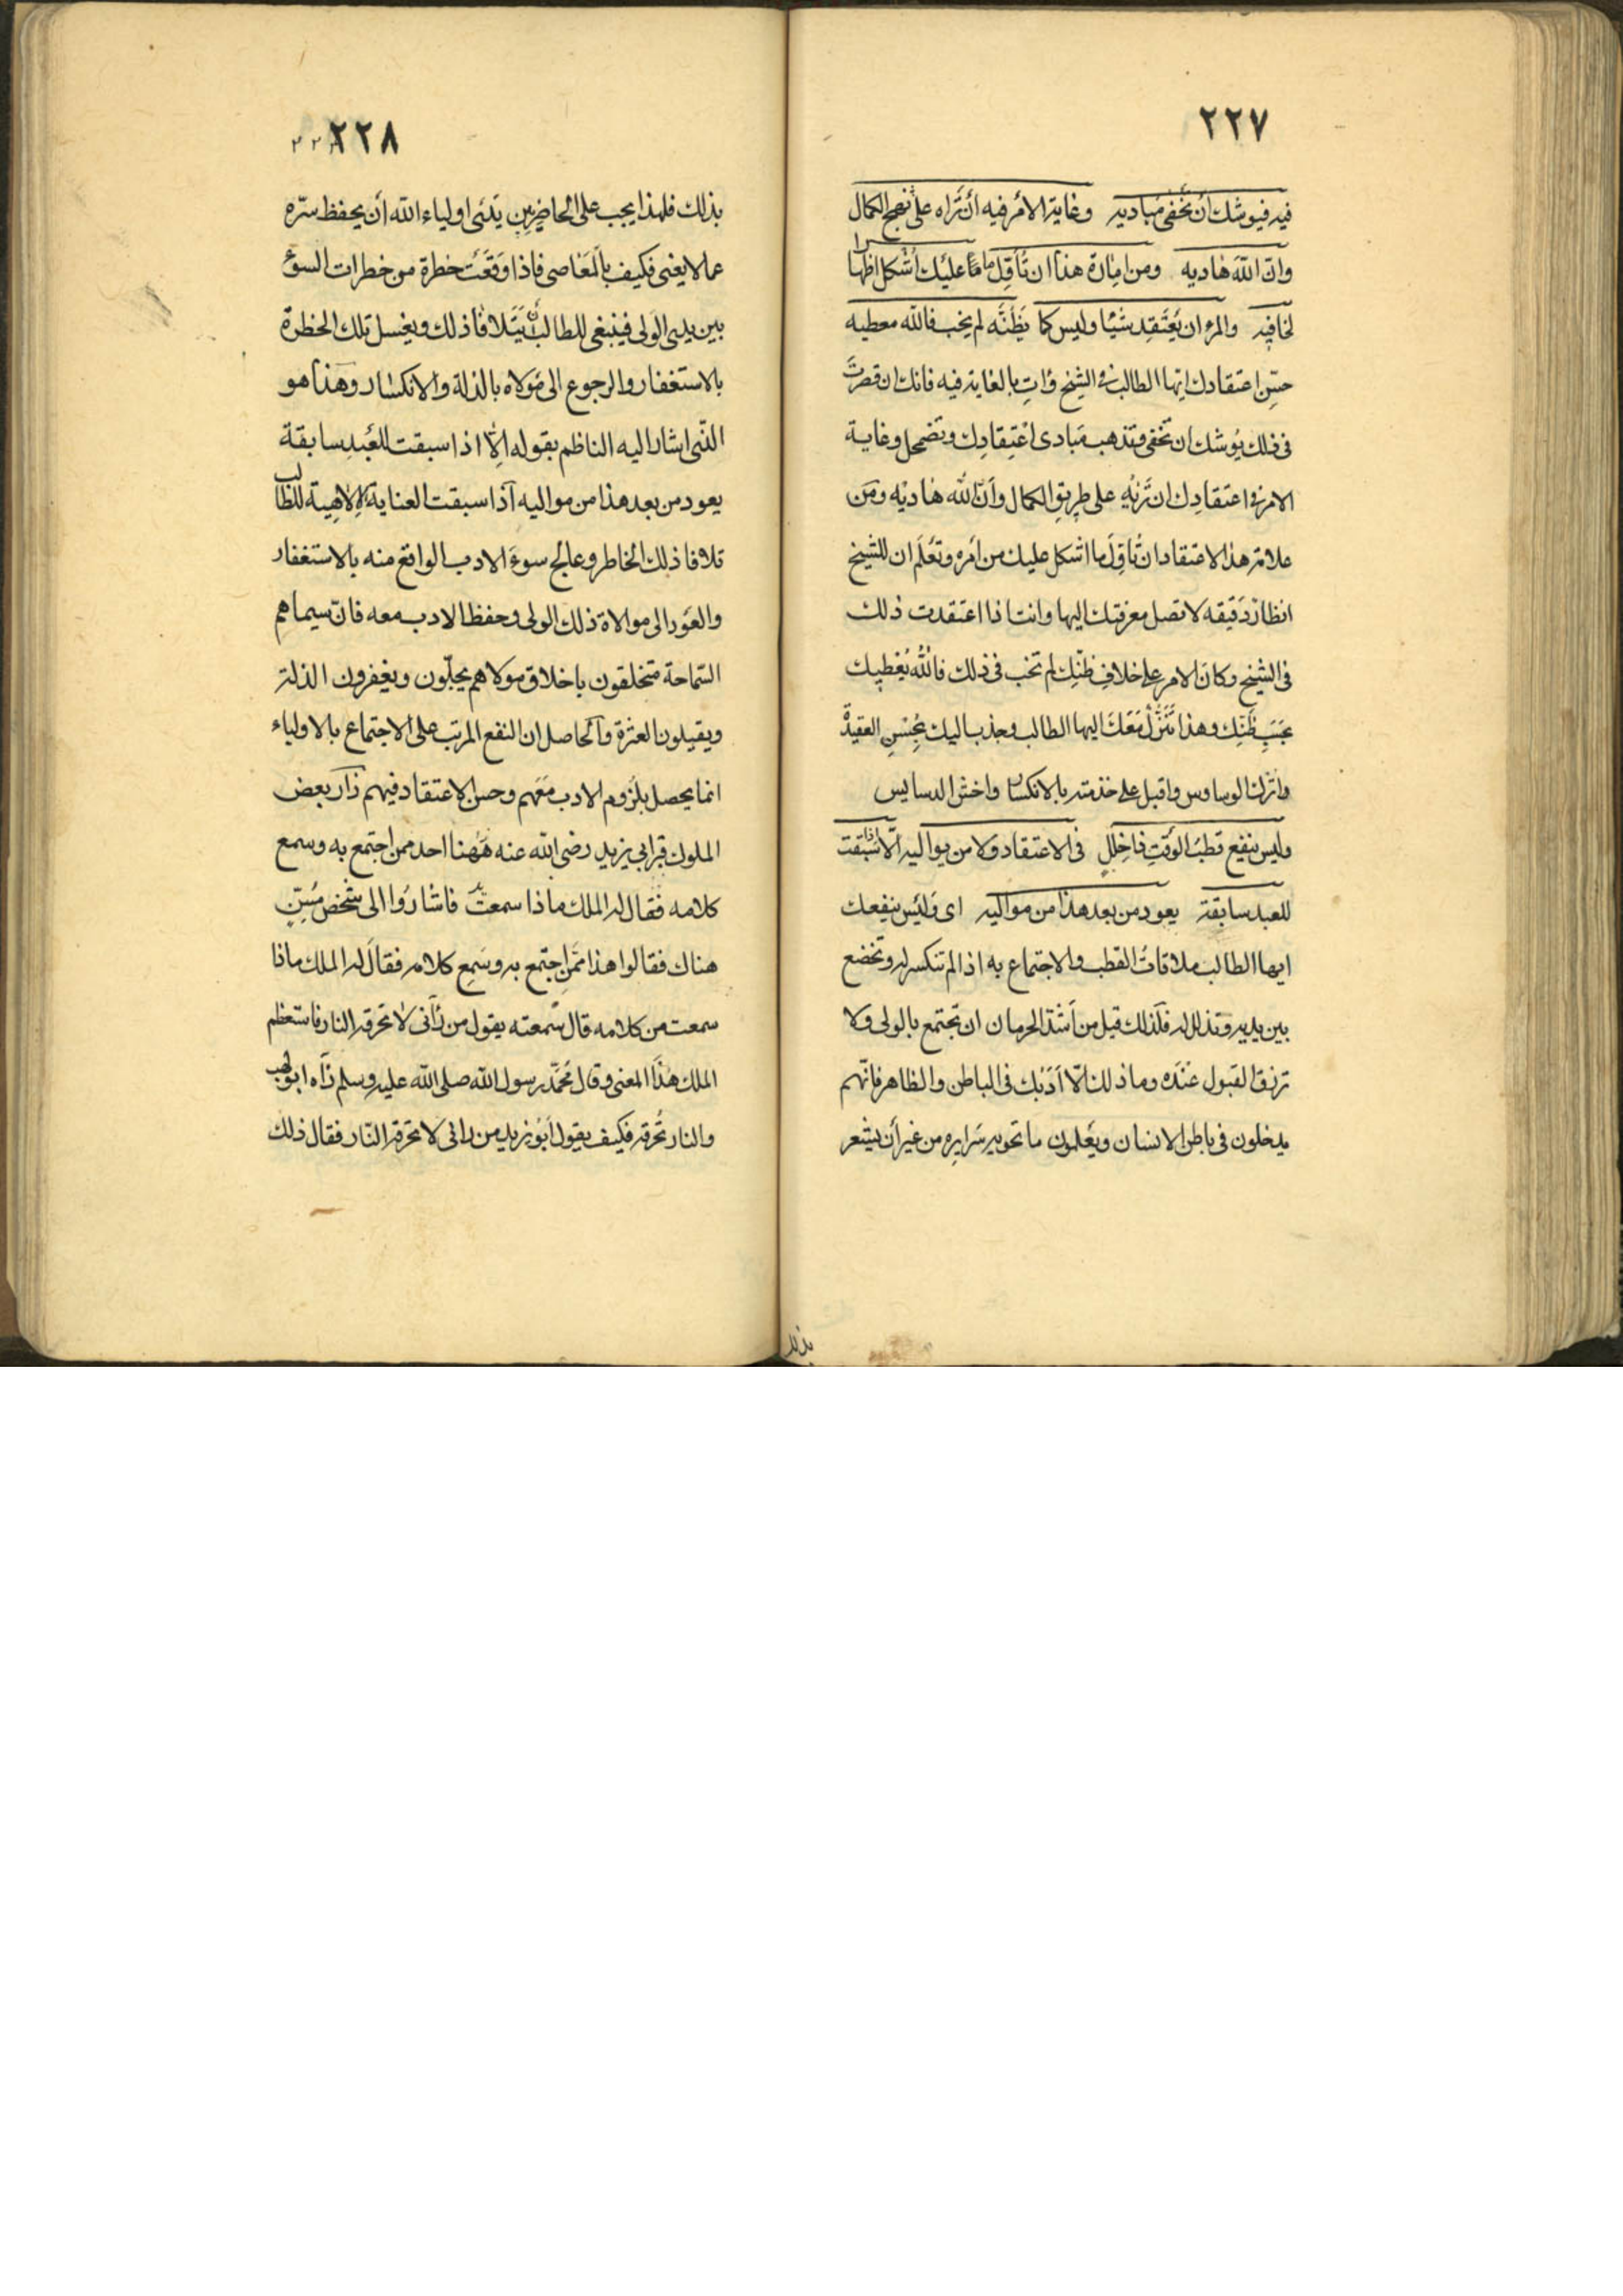 ٢٢٧
فيه فيوشك أن تخفى مباديه وغاية الأمر فيه أن تراه على نهج الكمال
وان الله هاديه ومن امارة هذا ان تأول ما عليك أشكل اظهارا
لخافيه والمرء ان يعتقد شيئا وليس كما يظنه لم يخب فالله معطيه
حسن اعتقادك ايها الطالب في الشيخ وات بالغاية فيه فانك ان قصرت
في ذلك يوشك ان تخفى وتذهب مبادى اعتقادك وتضمحل وغاية
الامر في اعتقادك ان تربه على طريق الكمال وأن الله هاديه ومن
علامة هذا الاعتقاد ان تأول ما اشكل عليك من أمره وتعلم ان للشيخ
انظار دقيقه لا تصل معرفتك اليها وانت اذا اعتقدت ذلك
في الشيخ وكان الامر على خلاف ظنك لم تخب في ذلك فالله يعطيك
بحسب ظنك وهذا تنزل معك ايها الطالب وجذب اليك بحسن العقيدة
واترك الوساوس واقبل على خدمته بالانكسار واخش الدسايس
وليس ينفع قطب الوقت ذا خلل في الاعتقاد ولا من يواليه الا اذا سبقت
للعبد سابقة يعود من بعد هذا من مواليه اى وليس ينفعك
ايها الطالب ملاقات القطب والاجتماع به اذا لم تنكسر له وتخضع
بين يديه وتذلل له فلذلك قيل من أشد الحرمان ان تجتمع بالولى ولا
ترزق القبول عنده وما ذلك الا أدبك في الباطن والظاهر فانهم
يدخلون في باطن الانسان ويعلمون ما تحويه سرايره من غير أن يشعر
بذلك
٢٢٨
بذلك فلهذا يجب على الحاضر بين يدى اولياء الله أن يحفظ سره
عما لا يعنى فكيف بالمعاصى فاذا وقعت خطرة من خطرات السوء
بين يدى الولى فينبغى للطالب أن يتلافا ذلك ويغسل تلك الخطرة
بالاستغفار والرجوع الى مولاه بالذلة والانكسار وهذا هو
الذى اشار اليه الناظم بقوله الا اذا سبقت للعبد سابقة
يعود من بعد هذا من مواليه اذا سبقت العناية الالاهية للطالب
تلافا ذلك الخاطر وعالج سوء الادب الواقع منه بالاستغفار
والعود الى موالاة ذلك الولى وحفظ الادب معه فان سيماهم
السماحة متخلقون باخلاق مولاهم يحلمون ويغفرون الذلة
ويقيلون العثرة والحاصل ان النفع المرتب على الاجتماع بالاولياء
انما يحصل بلزوم الادب معهم وحسن الاعتقاد فيهم زار بعض
الملوك قبر ابي يزيد رضى الله عنه هل هنا احد ممن اجتمع به وسمع
كلامه فقال له الملك ماذا سمعت فاشاروا الى شخص مسن
هناك فقالوا هذا ممن اجتمع به وسمع كلامه فقال له الملك ماذا
سمعت من كلامه قال سمعته يقول من رآنى لا تحرقه النار فاستعظم
الملك هذا المعنى وقال محمد رسول الله صلى الله عليه وسلم رآه ابو لهب
والنار تحرقه فكيف يقول أبو يزيد من راني لا تحرقه النار فقال ذلك